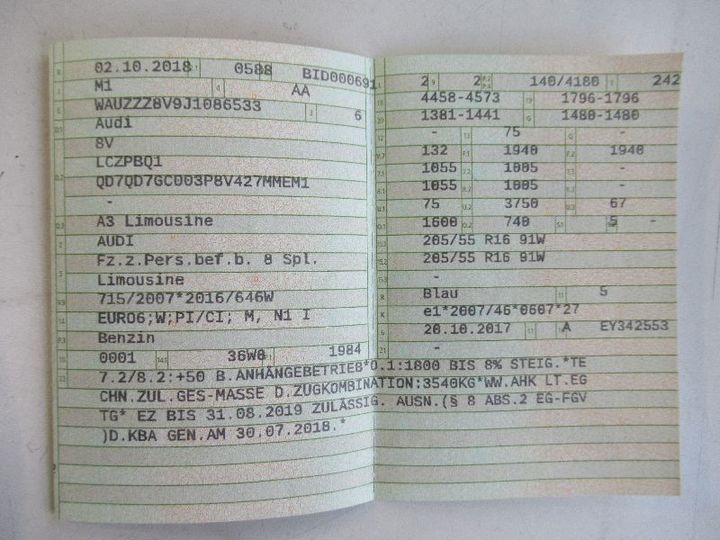 02.10.2018 0588 BID000691
M1 AA
WAUZZZ8V9J1086533 6
Audi
8V
LCZPBQ1
QD7QD7GC003P8V427MMEM1
-
A3 Limousine
AUDI
Fz.z.Pers.bef.b. 8 Spl.
Limousine
715/2007*2016/646W
EURO6;W;PI/CI; M, N1 I
Benzin
0001 36W0 1984
2 2 140/4180 242
4458-4573 1796-1796
1381-1441 1480-1480
- 75 -
132 1940 1940
1055 1005 -
1055 1005 -
75 3750 67
1600 740 5 -
205/55 R16 91W
205/55 R16 91W
-
Blau 5
e1*2007/46*0607*27
20.10.2017 A EY342553
-
7.2/8.2:+50 B.ANHÄNGEBETRIEB*O.1:1800 BIS 8% STEIG.*TE
CHN.ZUL.GES-MASSE D.ZUGKOMBINATION:3540KG*WW.AHK LT.EG
TG* EZ BIS 31.08.2019 ZULÄSSIG. AUSN.(§ 8 ABS.2 EG-FGV
)D.KBA GEN.AM 30.07.2018.*